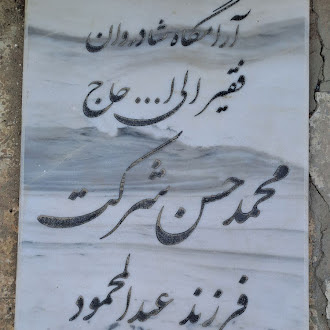 آرامگاه شادروان
فقیر الی ا... حاج
محمد حسن شرکت
فرزند عبدالمحمود